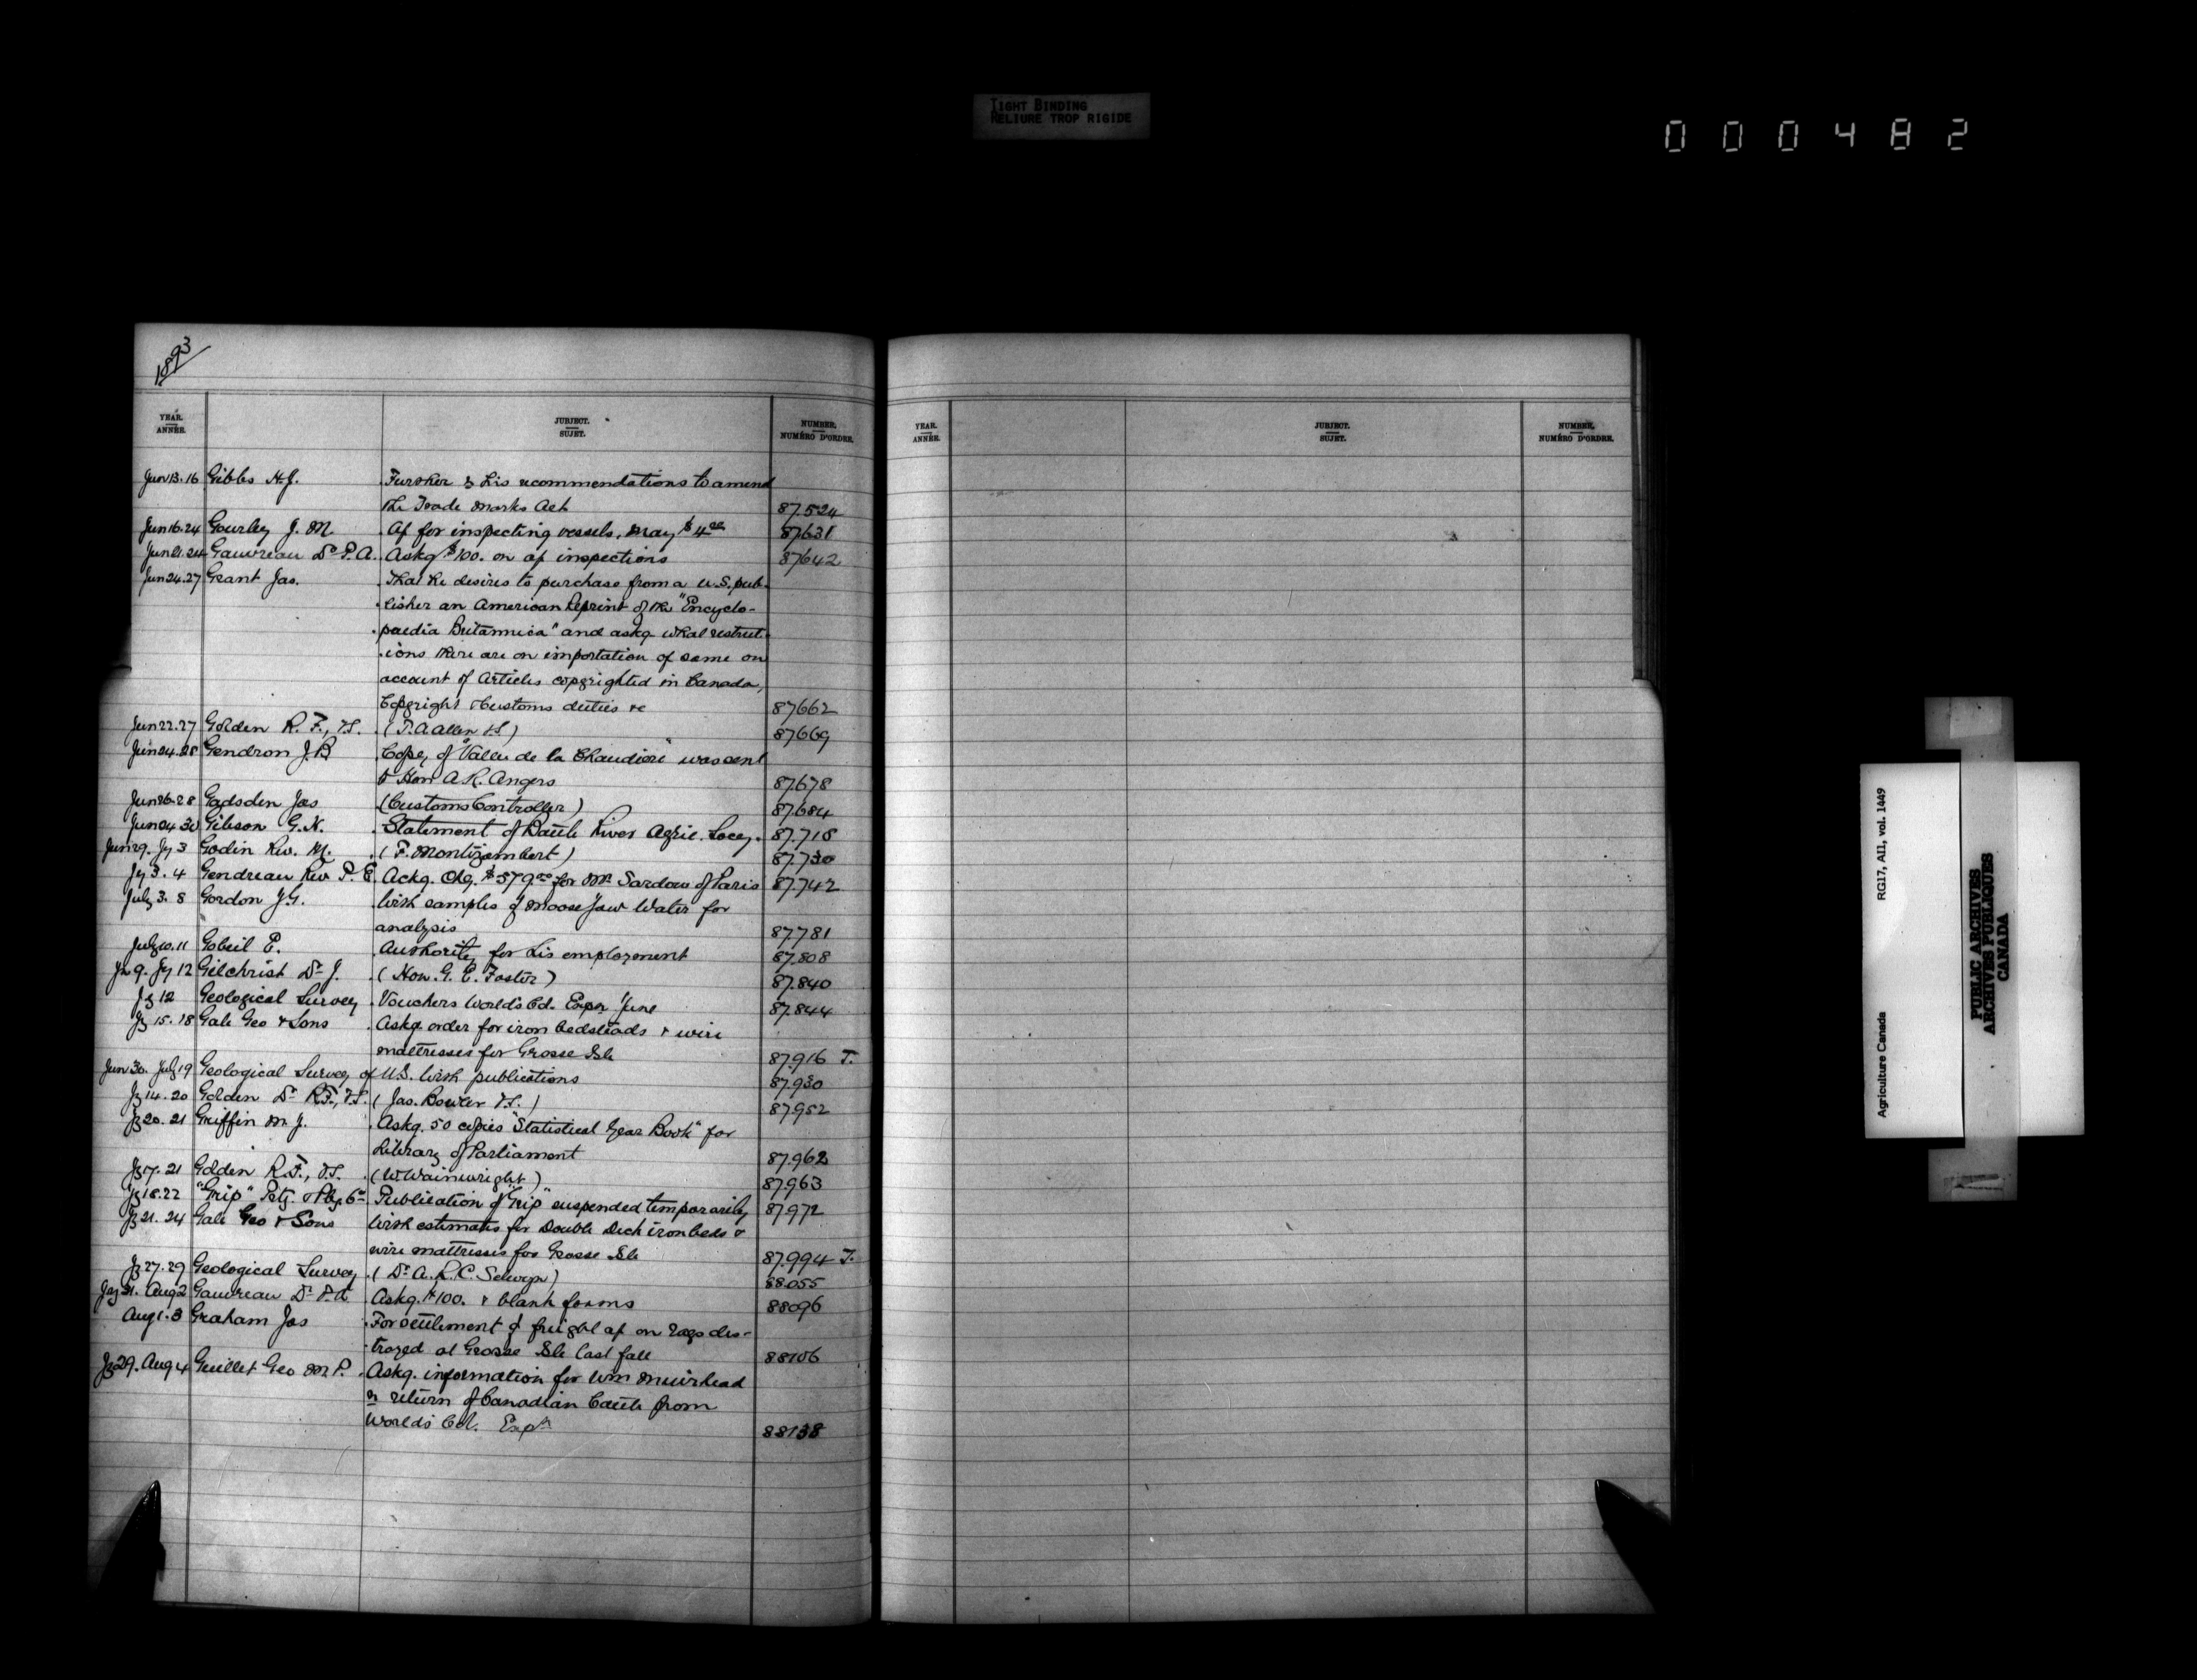 TIGHT BINDING
RELIURE TROP RIGIDE
000482
1893
YEAR. ANNÉE. JUBJECT. SUJET. NUMBER. NUMÉRO D'ORDRE.
Jun 13.16 Gibbs H.J. Further re his recommendations to amend
the Trade Marks Act 87.524
Jun 16.24 Gourley J. M. Ap for inspecting vessels, May $4.00 87631
Jun 21.24 Gauvreau Dr P.A. Askg $100. on ap inspections 87642
Jun 24.27 Grant Jas. That he desires to purchase from a U.S. pub-
lisher an American Reprint of the "Encyclo-
paedia Britannica" and askg what restrict-
ions there are on importation of same on
account of Articles copyrighted in Canada,
Copyright & Customs duties &c 87662
Jun 22.27 Golden R. F., V.S. (T. A Allen V.S) 87669
Jun 24.28 Gendron J. B Copy of "Vallee de la Chaudiere" was sent
to Hon A. R. Angers 87.678
Jun 26.28 Gadsden Jas (Customs Controller) 87.684
Jun 24 30 Gibson G. N. Statement of Battle River Agric. Socy. 87.718
Jun 29. Jy 3 Godin Rev. M. (F. Montizambert) 87.730
Jy 3. 4 Gendreau Rev P. E. Ackg. Chq. $579.00 for Mr Sardou of Paris 87.742
July 3. 8 Gordon J. G. With samples of Moose Jaw Water for
analysis 87781
July 10.11 Gobeil E. Authority for his employment 87.808
Jn 9. Jy 12 Gilchrist Dr J. (Hon. G. E. Foster) 87.840
Jy 12 Geological Survey Vouchers World's Col. Expn June 87.844
Jy 15. 18 Gale Geo & Sons Askg order for iron bedsteads & wire
mattresses for Grosse Isle 87.916 T.
Jun 30. July 19 Geological Survey of U.S. With publications 87.930
Jy 14. 20 Golden Dr R.F., V.S. (Jas. Bowler V.S.) 87952
Jy 20. 21 Griffin M J. Askg. 50 copies "Statistical Year Book" for
Library of Parliament 87.962
Jy 17. 21 Golden R.F., V.S. (W. Wainwright) 87.963
Jy 18.22 "Grip" Ptg. & Pbg. Co Publication of "Grip" suspended temporarily 87.972
Jy 21. 24 Gale Geo & Sons With estimates for Double Deck iron beds &
wire mattresses for Grosse Isle 87.994 T.
Jy 27.29 Geological Survey (Dr A. R. C. Selwyn) 88.055
July 31. Aug 2 Gauvreau Dr P.A. Askg. $100. & blank forms 88096
Aug 1. 3 Graham Jas For settlement of freight ap on rags des-
troyed at Grosse Isle last fall 88106
Jy 29. Aug 4 Guillet Geo M P. Askg. information for Wm Muirhead
re return of Canadian Cattle from
World's Col. Expn 88138
YEAR. ANNÉE. JUBJECT. SUJET. NUMBER. NUMÉRO D'ORDRE.
Agriculture Canada RG17, AII, vol. 1449
PUBLIC ARCHIVES
ARCHIVES PUBLIQUES
CANADA